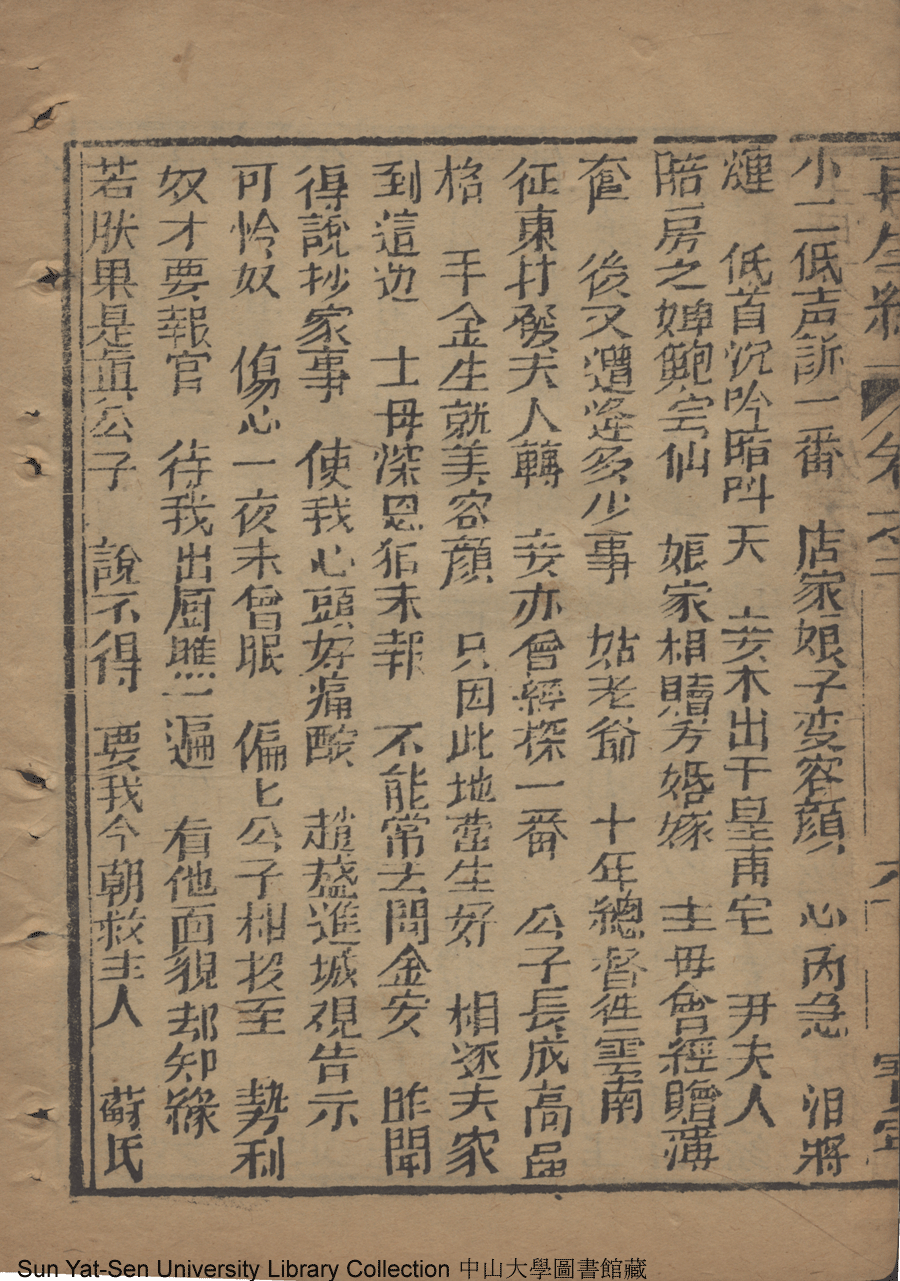 再生緣 卷之三 六
小二低声訴一番 店家娘子变容顔 心内急 泪將
漣 低首沉吟暗呌天 妾本出于皇甫宅 尹夫人
陪房之婢鮑雲仙 娘家相贈芳婚嫁 主毋曾經贈薄
奩 後又遭逢多少事 姑老爺 十年總督徃雲南
征東打發夫人轉 妾亦曾經探一番 公子長成高品
格 千金生就美容顔 只因此地营生好 相逐夫家
到這边 士毋深恩犹未報 不能常去問金安 昨聞
得說抄家事 使我心頭好痛酸 趙盛進城視告示
可怜奴 傷心一夜未曾眠 偏匕公子相投至 勢利
奴才要報官 待我出厨瞧一遍 看他面貌却知緣
若肰果是眞公子 說不得 要我今朝救主人 蘇氏
Sun Yat-Sen University Library Collection 中山大學圖書館藏